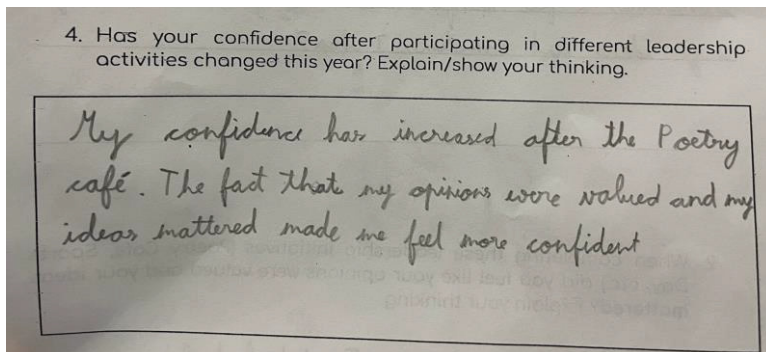 4. Has your confidence after participating in different leadership
activities changed this year? Explain/show your thinking.
My confidence has increased after the Poetry
café. The fact that my opinions were valued and my
ideas mattered made me feel more confident